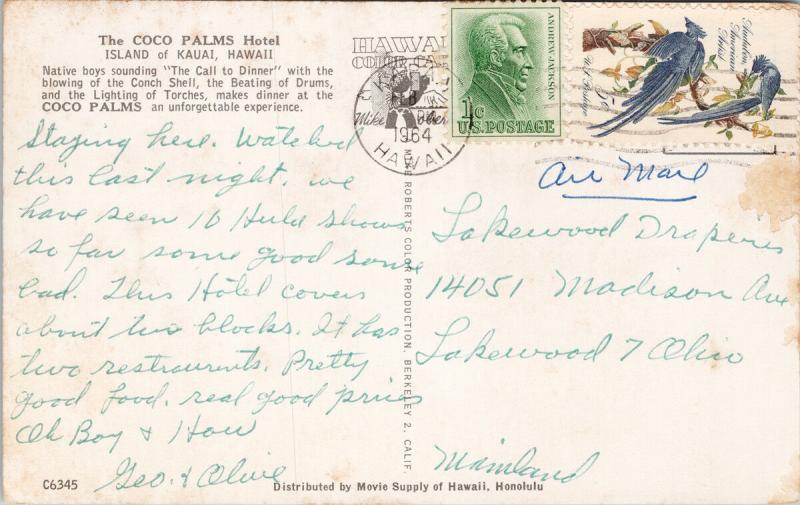 The COCO PALMS Hotel
ISLAND of KAUAI, HAWAII
Native boys sounding "The Call to Dinner" with the
blowing of the Conch Shell, the Beating of Drums,
and the Lighting of Torches, makes dinner at the
COCO PALMS an unforgettable experience.
Staying here. Watched
this last night. we
have seen 16 Hula shows
so far some good some
bad. This Hotel covers
about two blocks. It has
two restraurents. Pretty
good food. real good prices
Oh Boy & How
Geo. & Olive
C6345
Distributed by Movie Supply of Hawaii, Honolulu
MIKE ROBERTS COLOR PRODUCTION, BERKELEY 2, CALIF.
HAWAII
COLOR CA
Mike Rober
FEB
1964
HAWAII
ANDREW JACKSON
1c
U.S. POSTAGE
Audubon
American
Artist
U.S. Postage
Air Mail
Lakewood Draperies
14051 Madison Ave
Lakewood 7 Ohio
Mainland